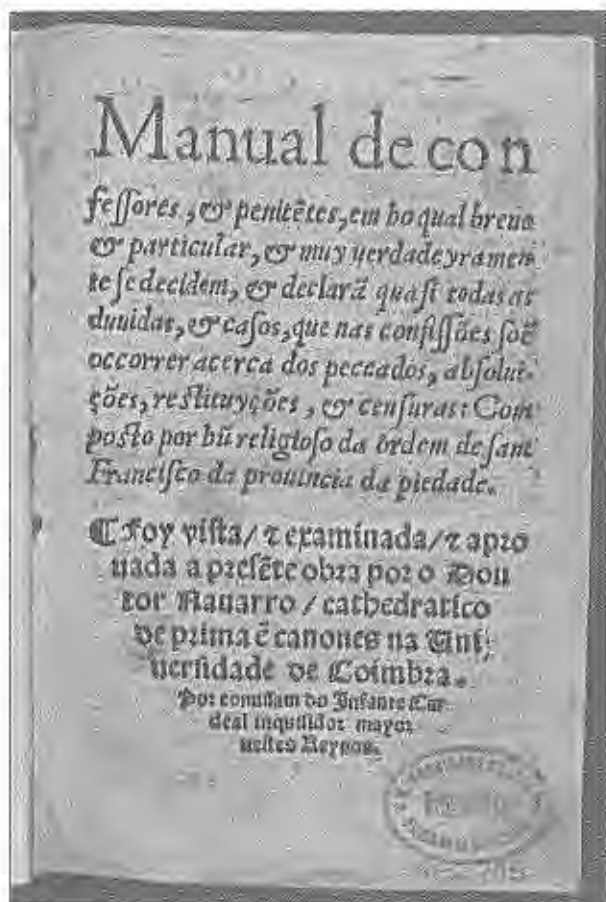 Manual de con
feſſores, & penitẽtes, em ho qual breue
& particular, & muy verdadeyramen
te ſe decidem, & declarã quaſi todas as
duuidas, & caſos, que nas confiſſões ſoẽ
occorrer acerca dos peccados, abſolui-
ções, reſtituyções, & cenſuras: Com
poſto por hũ religioſo da ordem de ſant
Franciſco da prouincia da piedade.
¶ Foy viſta/ ⁊ examinada/ ⁊ apro
uada a preſẽte obra por o Dou
tor Nauarro / cathedratico
de prima ẽ canones na Uni
uerſidade de Coimbra.
Por comiſſam do Infante Car
deal inquiſidor mayor
neſtes Reynos.